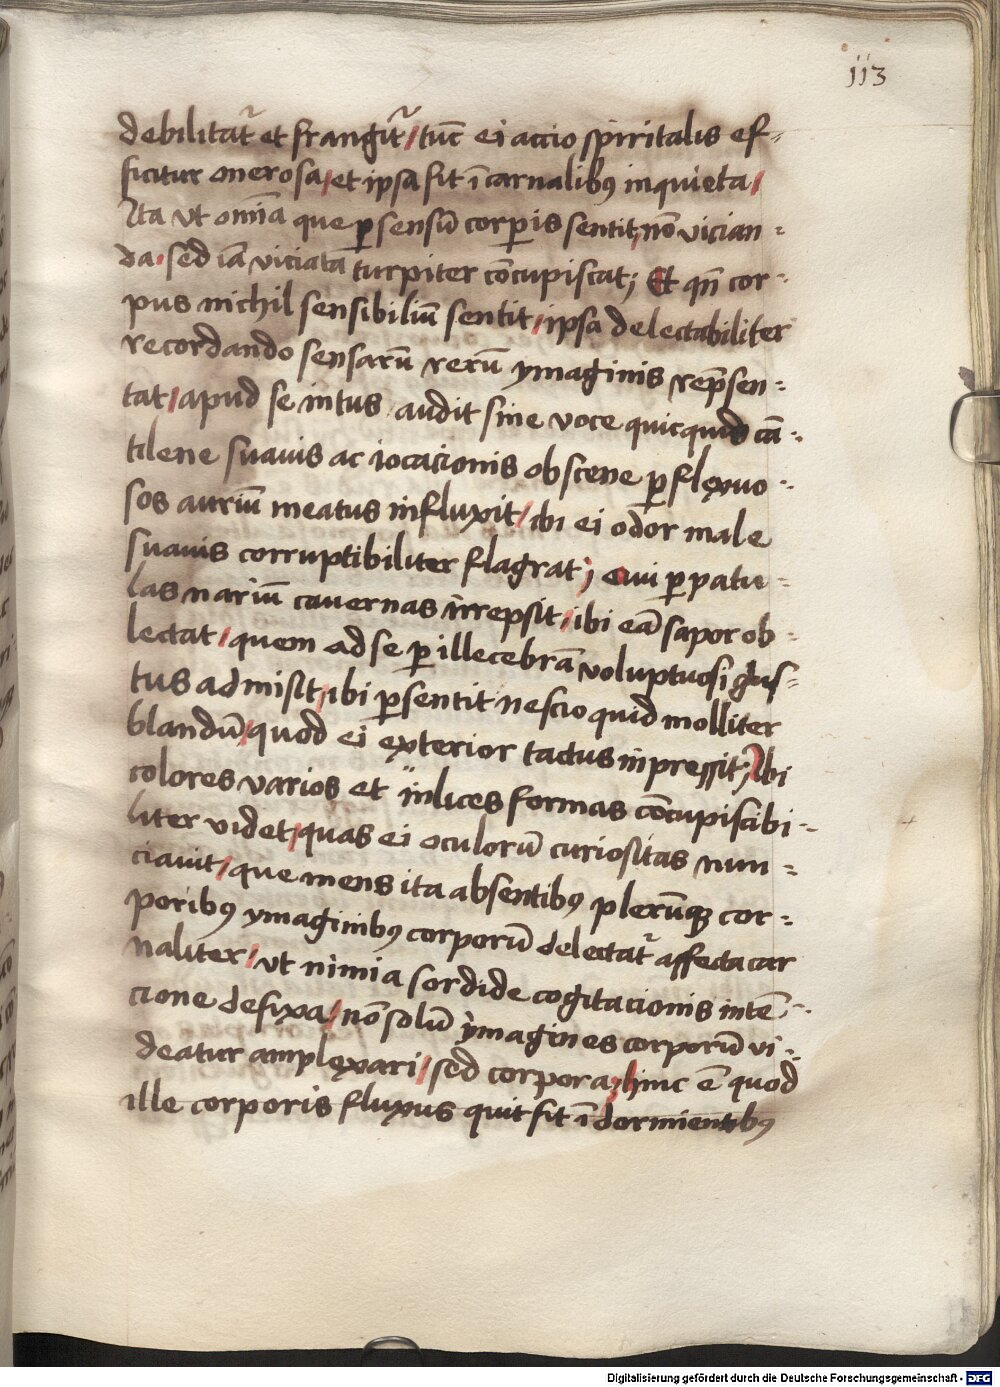 113
debilitat᷑ et frangit᷑ / tūc ei accio spiritalis ef-
ficitur onerosa / et ipsa fit ī carnalibꝰ inquieta /
Ita vt om̄ia que ꝑ sensū corꝑis sentit / nō vician-
da · sed iā viciata turpiter cōcupiscat ; Et qn̄ cor-
pus nichil sensibiliū sentit / ipsa delectabiliter
recordando sensarū rerū ymaginis rep̄sen-
tat / apud se intus audit sine voce quicquid cā-
tilene suauis ac iocacionis obscene ꝑ flexuo-
sos auriū meatus influxit / ibi ei odor male
suauis corruptibiliter flagrat ; qui ꝑ patu-
las nariū cauernas irrepsit / ibi eā sapor ob-
lectat / quem ad se ꝑ illecebrā voluptuosi gus-
tus admisit / ibi ꝑsentit nescio quid molliter
blandū / quod ei exterior tactus inpressit ; Ibi
colores varios et inlices formas cōcupiscibi-
liter videt / quas ei oculorū curiositas nun-
ciauit / que mens ita absentibꝰ plerūqꝫ cor-
poribꝰ ymaginibꝰ corporū delectat᷑ affecta car
naliter / vt nimia sordide cogitacionis intē-
cione defixa / nō solū ymagines corporū vi-
deatur amplexari / sed corpora ; hinc ē quod
ille corporis fluxus qui fit ī dormientibꝰ
Digitalisierung gefördert durch die Deutsche Forschungsgemeinschaft - DFG